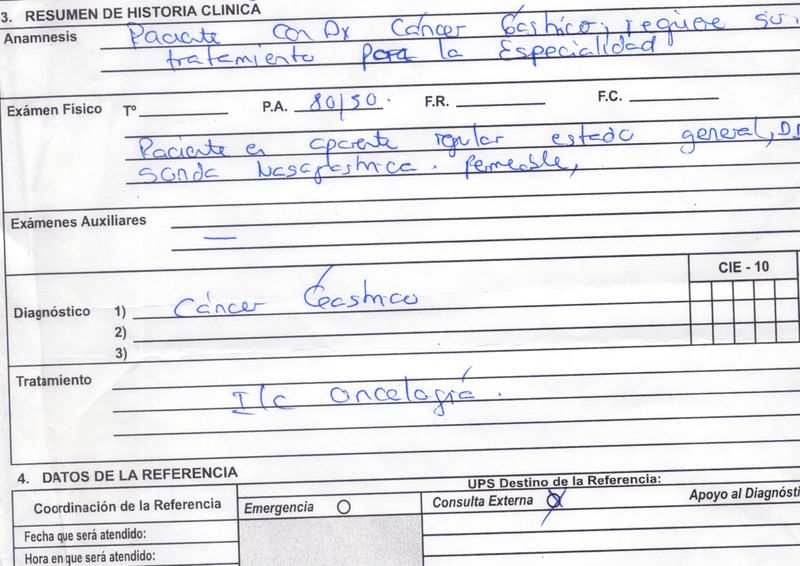 3. RESUMEN DE HISTORIA CLINICA
Anamnesis Paciente con Dx Cáncer Gástrico, requiere su
tratamiento para la Especialidad
Exámen Físico Tº P.A. 80/50. F.R. F.C.
Paciente en aparente regular estado general,
Sonda Nasogástrica. Permeable,
Exámenes Auxiliares —
CIE - 10
Diagnóstico 1) Cáncer Gástrico
2)
3)
Tratamiento
I/c oncología.
4. DATOS DE LA REFERENCIA
UPS Destino de la Referencia:
Coordinación de la Referencia Emergencia Consulta Externa Apoyo al Diagnósti
Fecha que será atendido:
Hora en que será atendido: